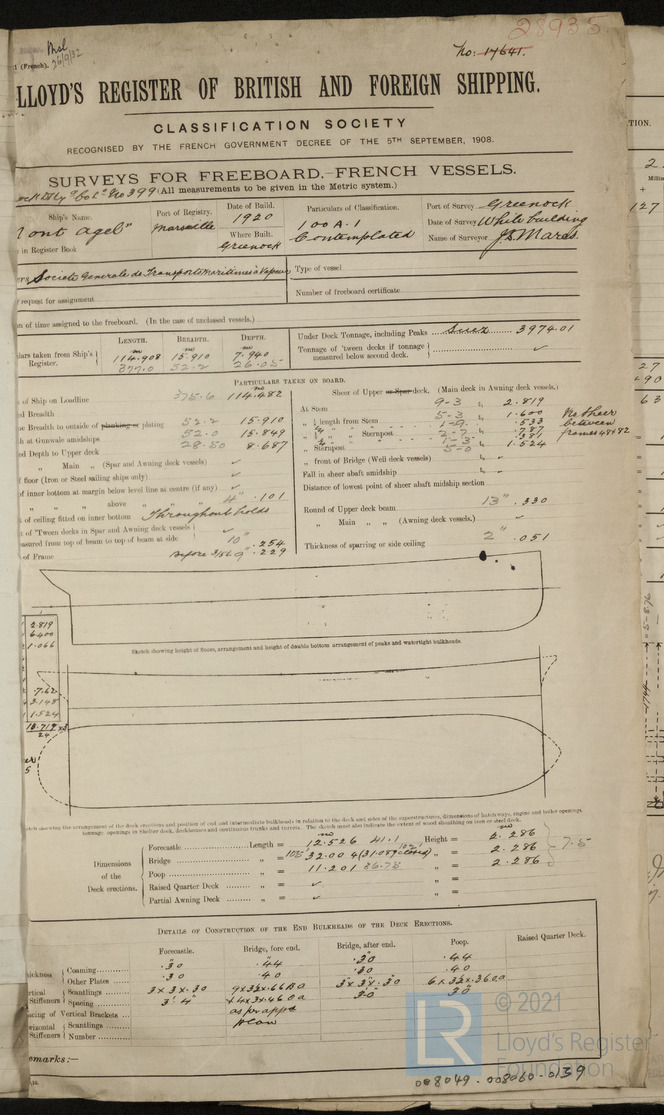 28935
Msl
26/9/32
1 (French).
No: 17641.
LLOYD'S REGISTER OF BRITISH AND FOREIGN SHIPPING.
CLASSIFICATION SOCIETY
RECOGNISED BY THE FRENCH GOVERNMENT DECREE OF THE 5TH SEPTEMBER, 1908.
SURVEYS FOR FREEBOARD.—FRENCH VESSELS.
No 399 (All measurements to be given in the Metric system.)
Ship's Name. Port of Registry. Date of Build. Particulars of Classification. Port of Survey Greenock
ont Agel" Marseille 1920 100 A.1 Date of Survey While building
in Register Book Where Built. Contemplated Name of Surveyor
Greenock
Societe Generale de Transports Maritimes à Vapeur Type of vessel
request for assignment Number of freeboard certificate
n of time assigned to the freeboard. (In the case of unclassed vessels.)
LENGTH. BREADTH. DEPTH. Under Deck Tonnage, including Peaks Suez 3974.01
lars taken from Ship's Register. 114.908 15.910 7.940 Tonnage of 'tween decks if tonnage measured below second deck.
377.0 52.2 26.05
PARTICULARS TAKEN ON BOARD.
of Ship on Loadline 375.6 114.482 Sheer of Upper or Spar deck. (Main deck in Awning deck vessels,)
d Breadth At Stem 9-3 2.819
Breadth to outside of planking or plating 52.2 15.910 ¼ length from Stem 5-3 1.600
h at Gunwale amidships 52.0 15.849 1-9 .533
ed Depth to Upper deck 28.50 8.687 Sternpost 2-7 .787
1-3 .381
Sternpost 5-0 1.524
No Sheer between frames 48 & 82
Main (Spar and Awning deck vessels)
floor (Iron or Steel sailing ships only) front of Bridge (Well deck vessels)
of inner bottom at margin below level line at centre (if any) Fall in sheer abaft midship
above 4" .101 Distance of lowest point of sheer abaft midship section
of ceiling fitted on inner bottom Throughout holds Round of Upper deck beam 13" .330
t of 'Tween decks in Spar and Awning deck vessels Main (Awning deck vessels,)
asured from top of beam to top of beam at side 10" .254
of Frame before 3/5L 9" .229 Thickness of sparring or side ceiling 2" .051
Sketch showing height of floors, arrangement and height of double bottom arrangement of peaks and watertight bulkheads.
2.819
6.400
1.066
7.62
3.148
1.524
18.719
24
tch showing the arrangement of the deck erections and position of end and intermediate bulkheads in relation to the deck and sides of the superstructures, dimensions of hatch ways, engine and boiler openings,
tonnage openings in shelter deck, deckhouses and continuous trunks and turrets. The sketch must also indicate the extent of wood sheathing on iron or steel deck.
Dimensions of the Deck erections.
Forecastle Length = 12.526 41.1 Height = 2.286
Bridge = 105 32.004 (31.089 closed) = 2.286 7.5
Poop = 11.201 36.75 = 2.286
Raised Quarter Deck
Partial Awning Deck
DETAILS OF CONSTRUCTION OF THE END BULKHEADS OF THE DECK ERECTIONS.
Forecastle. Bridge, fore end. Bridge, after end. Poop. Raised Quarter Deck.
hickness Coaming .30 .44 .30 .44
Other Plates .30 .40 .30 .40
ertical Stiffeners Scantlings 3 x 3 x .30 9 x 3½ x .66 BA 3 x 3 x .30 6 x 3½ x .36 OA
Spacing 3' 4" + 4 x 3 x .46 OA 30 30
acing of Vertical Brackets as per appd plan
orizontal Stiffeners Scantlings
Number
emarks:—
© 2021
Lloyd's Register
Foundation
LR
008049-008060-0139